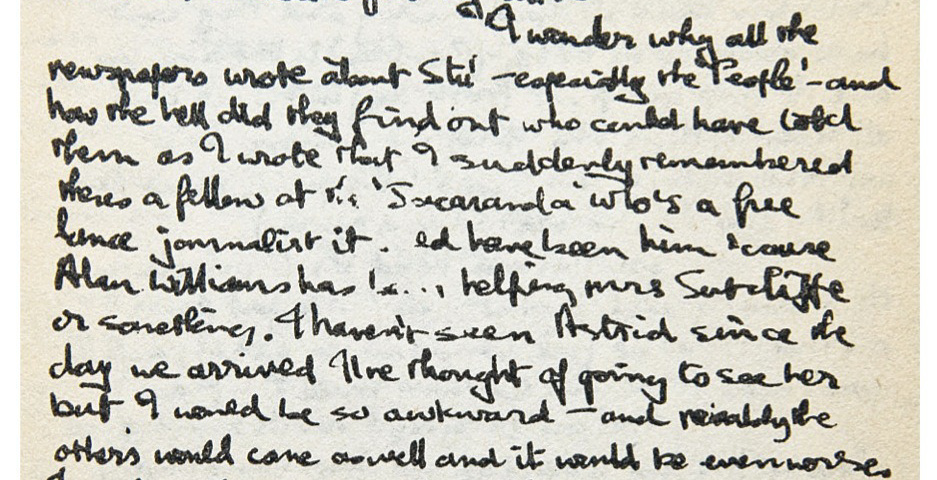 I wonder why all the
newspapers wrote about Stu' - especially the 'People' - and
how the hell did they find out who could have told
them as I wrote that I suddenly remembered
theres a fellow at the 'Jacaranda' who's a free
lance journalist it . ed have been him 'cause
Alan Williams has helping mrs Sutcliffe
or something. I haven't seen Astrid since the
day we arrived I've thought of going to see her
but I would be so awkward - and probably the
others would come aswell and it would be even worse